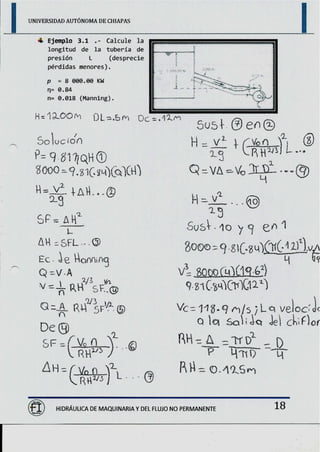 UNIVERSIDAD AUTÓNOMA DE CHIAPAS
Ejemplo 3.1 .- Calcule la
longitud de la tubería de
presión L (desprecie
pérdidas menores).
p = 8 000.00 KW
η= 0.84
n= 0.018 (Manning).
H=12.00m DL=.5m Dc=.12m
Solución
P= 9.81ηQH ①
8000=9.81(.84)(Q)(H)
H= V²/2g + ΔH...②
SF= ΔH²/L
ΔH=SFL...③
Ec. de Manning
Q=V·A
V= 1/n RH^2/3 SF^1/2.④
Q= A/n RH^2/3 SF^1/2.⑤
De ④
SF=(Vo n/RH^2/3)²..⑥
ΔH=(Vo n/RH^2/3)² L...⑦
Sust. ⑦ en ②
H= V²/2g + (Vo n/RH^2/3)² L... ⑧
Q=VA=Vo πD²/4 ---⑨
H= V²/2g ...⑩
Sust. 10 y 9 en 1
8000=9.81(.84)(π(.12)²)
V³= 8000(4)(19.62)/9.81(.84)(π)(.12²)
Vc=118.9 m/s; La
a la salida del
RH= A/P = πD²/4πD = D/4
RH=0.125m
HIDRÁULICA DE MAQUINARIA Y DEL FLUJO NO PERMANENTE 18